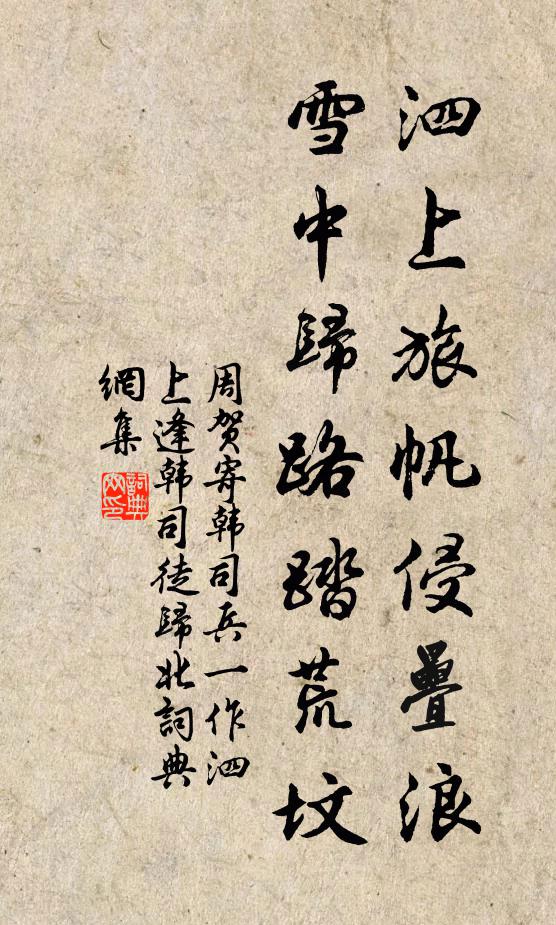 泗上旅帆侵疊浪
雪中歸路踏荒墳
周贺寄韩司兵一作泗
上逢韩司徒歸北詞典
網集
詞典
网印